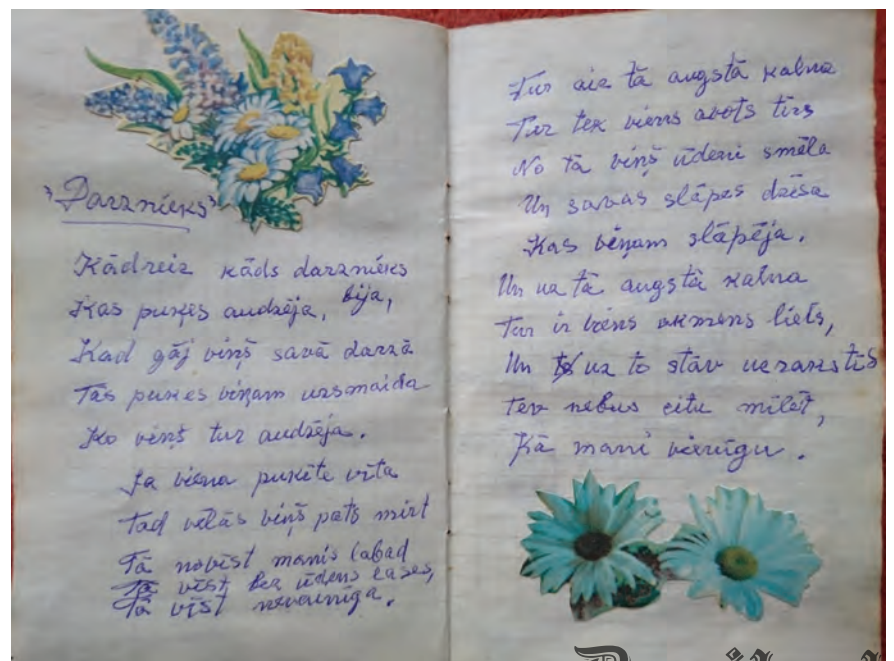 "Darznieks"
Kādreiz kāds darznieks
Kas puķes audzēja, bija,
Kad gāj viņš savā darzā
Tās puķes viņam uzsmaida
Ko viņš tur audzēja.
Ja viena puķīte vīta
Tad vēlās viņš pats mirt
Tā novīst manis labad
Tā vīst bez ūdens lases,
Tā vīst nevainīga.
Tur aiz tā augstā kalna
Tur tek viens avots tīrs
No tā viņš ūdeni smēla
Un savas slāpes dzēsa
Kas viņam slāpēja.
Un uz tā augstā kalna
Tur ir viens akmens liels,
Un uz to stāv uzrakstīts
Tev nebus citu mīlēt,
Kā mani vienīgu.